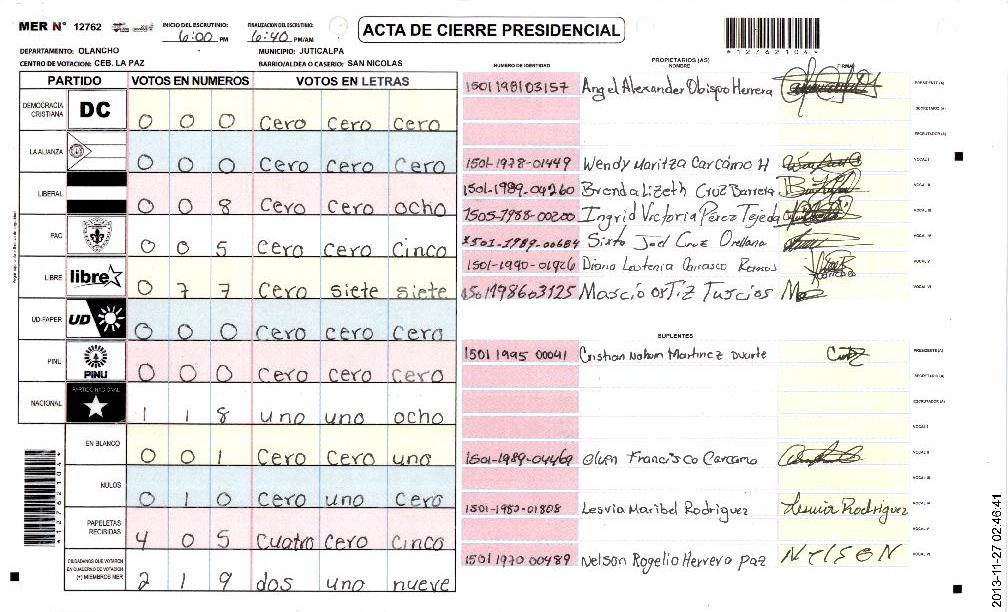 MER N° 12762
INICIO DEL ESCRUTINIO: 6:00 PM
FINALIZACION DEL ESCRUTINIO: 6:40 PM/AM
ACTA DE CIERRE PRESIDENCIAL
*127621041*
DEPARTAMENTO: OLANCHO
MUNICIPIO: JUTICALPA
CENTRO DE VOTACION: CEB. LA PAZ
BARRIO/ALDEA O CASERIO: SAN NICOLAS
PARTIDO VOTOS EN NUMEROS VOTOS EN LETRAS
DEMOCRACIA CRISTIANA DC 0 0 0 Cero Cero Cero
LA ALIANZA 0 0 0 Cero Cero Cero
LIBERAL 0 0 8 Cero Cero ocho
PAC 0 0 5 Cero Cero Cinco
LIBRE libre 0 7 7 Cero siete siete
UD-FAPER UD 0 0 0 Cero Cero Cero
PINU PINU 0 0 0 Cero Cero Cero
NACIONAL PARTIDO NACIONAL 1 1 8 uno uno ocho
EN BLANCO 0 0 1 Cero Cero uno
NULOS 0 1 0 Cero uno Cero
PAPELETAS RECIBIDAS 4 0 5 Cuatro Cero Cinco
CIUDADANOS QUE VOTARON EN CUADERNO DE VOTACION (+) MIEMBROS MER 2 1 9 dos uno nueve
PROPIETARIOS (AS)
NUMERO DE IDENTIDAD NOMBRE FIRMA
1501 1981 03157 Angel Alexander Obispo Herrera PRESIDENTE (A)
SECRETARIO (A)
ESCRUTADOR (A)
1501-1978-01449 Wendy Maritza Carcamo H VOCAL I
1501-1989-04260 Brenda Lizeth Cruz Barrera VOCAL II
1505-1988-00200 Ingrid Victoria Perez Tejeda VOCAL III
1501-1989-00684 Sixto Joel Cruz Orellana VOCAL IV
1501-1990-01926 Diana Carrasco Ramos VOCAL V
1501198603125 Ortiz Turcios VOCAL VI
SUPLENTES
1501 1995 00041 Cristian Nahum Martinez Duarte PRESIDENTE (A)
SECRETARIO (A)
ESCRUTADOR (A)
VOCAL I
1501-1989-04469 Francisco Carcamo VOCAL II
VOCAL III
1501-1980-01808 Lesvia Maribel Rodriguez Rodriguez VOCAL IV
VOCAL V
1501 1970 00489 Nelson Rogelio Herrera Paz NELSON VOCAL VI
2013-11-27 02:46:41